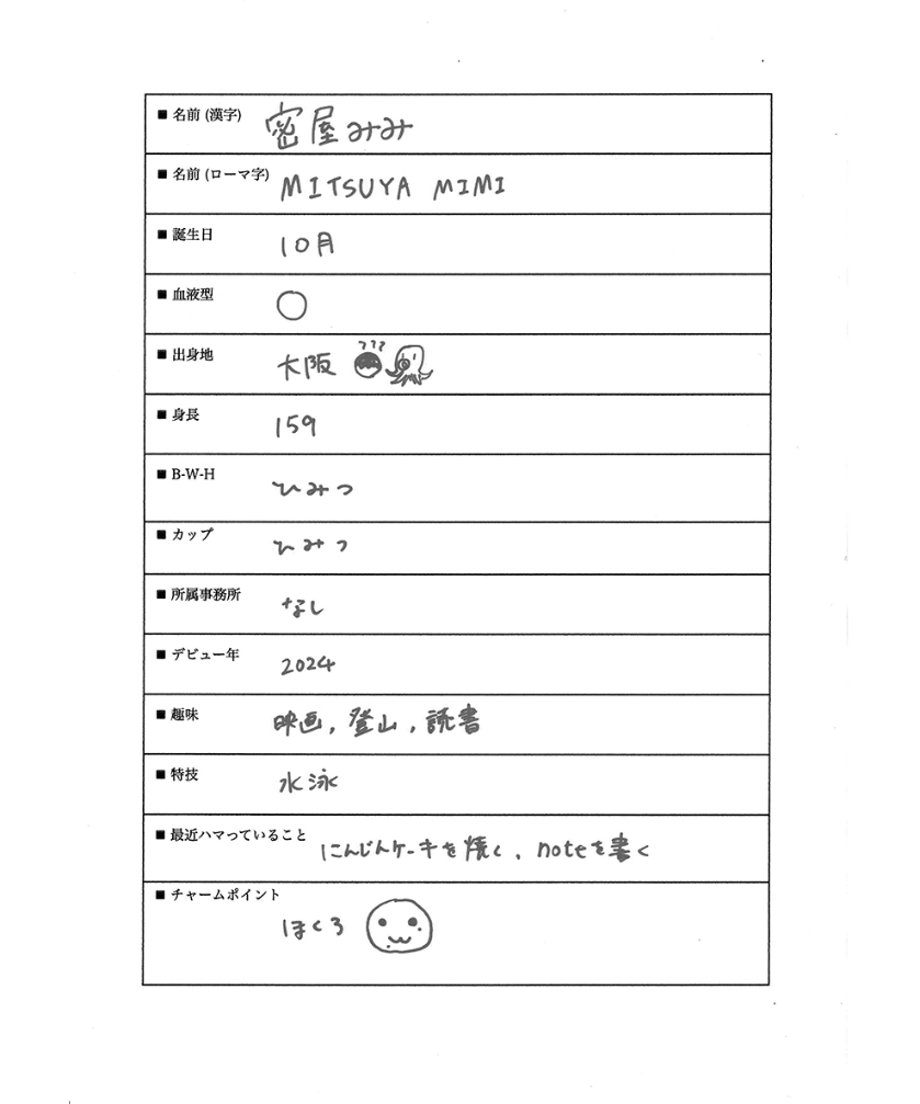 ■ 名前 (漢字) 密屋みみ
■ 名前 (ローマ字) MITSUYA MIMI
■ 誕生日 10月
■ 血液型 O
■ 出身地 大阪
■ 身長 159
■ B-W-H ひみつ
■ カップ ひみつ
■ 所属事務所 なし
■ デビュー年 2024
■ 趣味 映画, 登山, 読書
■ 特技 水泳
■ 最近ハマっていること にんじんケーキを焼く, noteを書く
■ チャームポイント ほくろ